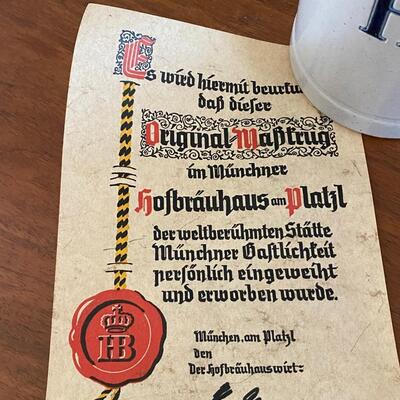 Es wird hiermit beurku
daß dieser
Original-Maßkrug
im Münchner
Hofbräuhaus am Platzl
der weltberühmten Stätte
Münchner Gastlichkeit
persönlich eingeweiht
und erworben wurde.
HB
München, am Platzl
den
Der Hofbräuhauswirt: